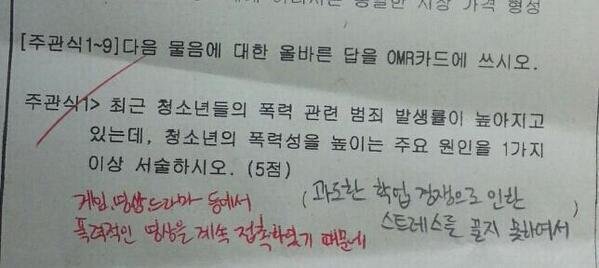 시장 가격 형성
[주관식1~9]다음 물음에 대한 올바른 답을 OMR카드에 쓰시오.
주관식1> 최근 청소년들의 폭력 관련 범죄 발생률이 높아지고
있는데, 청소년의 폭력성을 높이는 주요 원인을 1가지
이상 서술하시오. (5점)
게임, 영화드라마 등에서
폭력적인 영상을 계속 접촉하였기 때문에
(과도한 학업 경쟁으로 인한
스트레스를 풀지 못하여서)